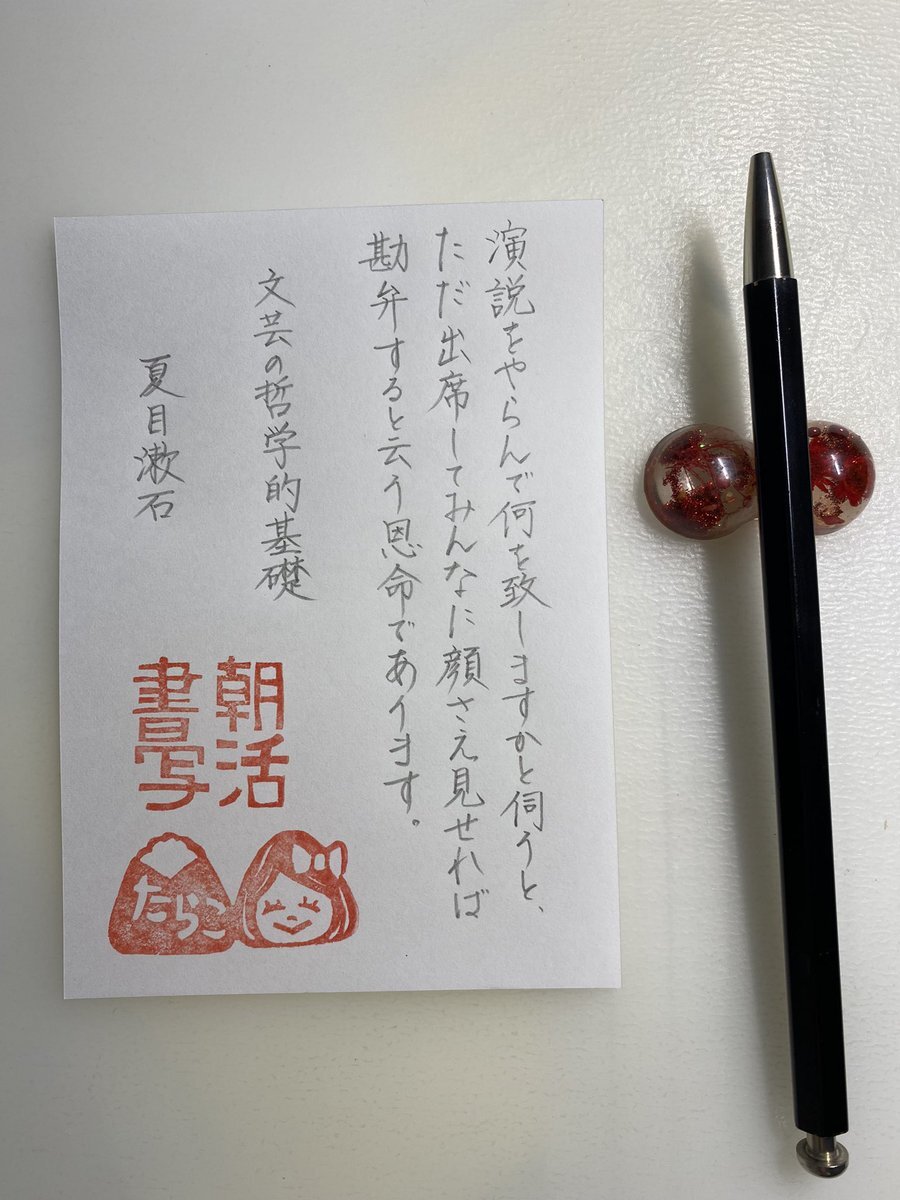 演説をやらんで何を致しますかと伺うと、
ただ出席してみんなに顔さえ見せれば
勘弁すると云う恩命であります。
文芸の哲学的基礎
夏目漱石
朝活
書写
たらこ